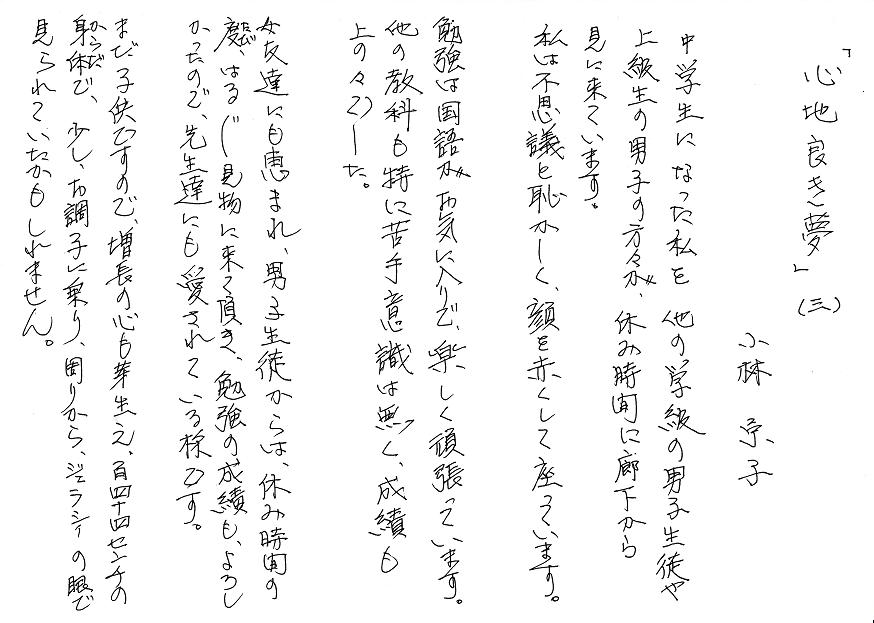 「心地良き夢」(三)
小林 京子
中学生になった私を 他の学級の男子生徒や
上級生の男子の方々が、休み時間に廊下から
見に来ています。
私は不思議と恥かしく、顔を赤くして座っています。
勉強は国語がお気に入りで、楽しく頑張っています。
他の教科も特に苦手意識は無く、成績も
上の々でした。
女友達にも恵まれ、男子生徒からは、休み時間の
度、はるじ見物に来て頂き、勉強の成績も、よろし
かったので、先生達にも愛されている様です。
まだ子供ですので、増長の心も芽生え、百四十四センチの
身体で、少し、お調子に乗り、周りから、ジェラシィの眼で
見られていたかもしれません。